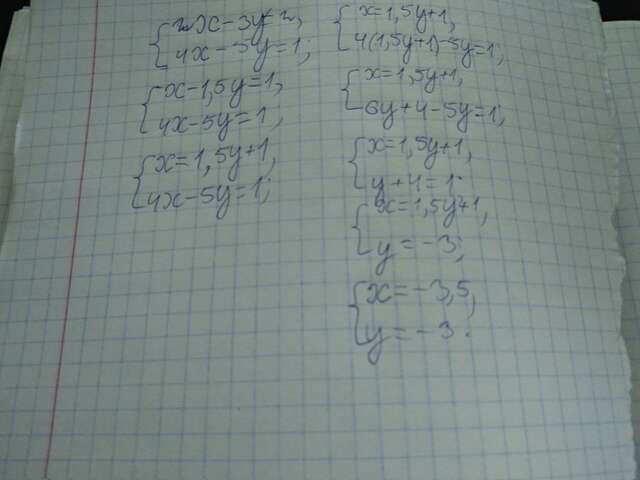 2x-3y=2,
4x-5y=1;
x-1,5y=1,
4x-5y=1,
x=1,5y+1,
4x-5y=1;
x=1,5y+1,
4(1,5y+1)-5y=1;
x=1,5y+1,
6y+4-5y=1;
x=1,5y+1,
y+4=1.
x=1,5y+1,
y=-3;
x=-3,5,
y=-3.